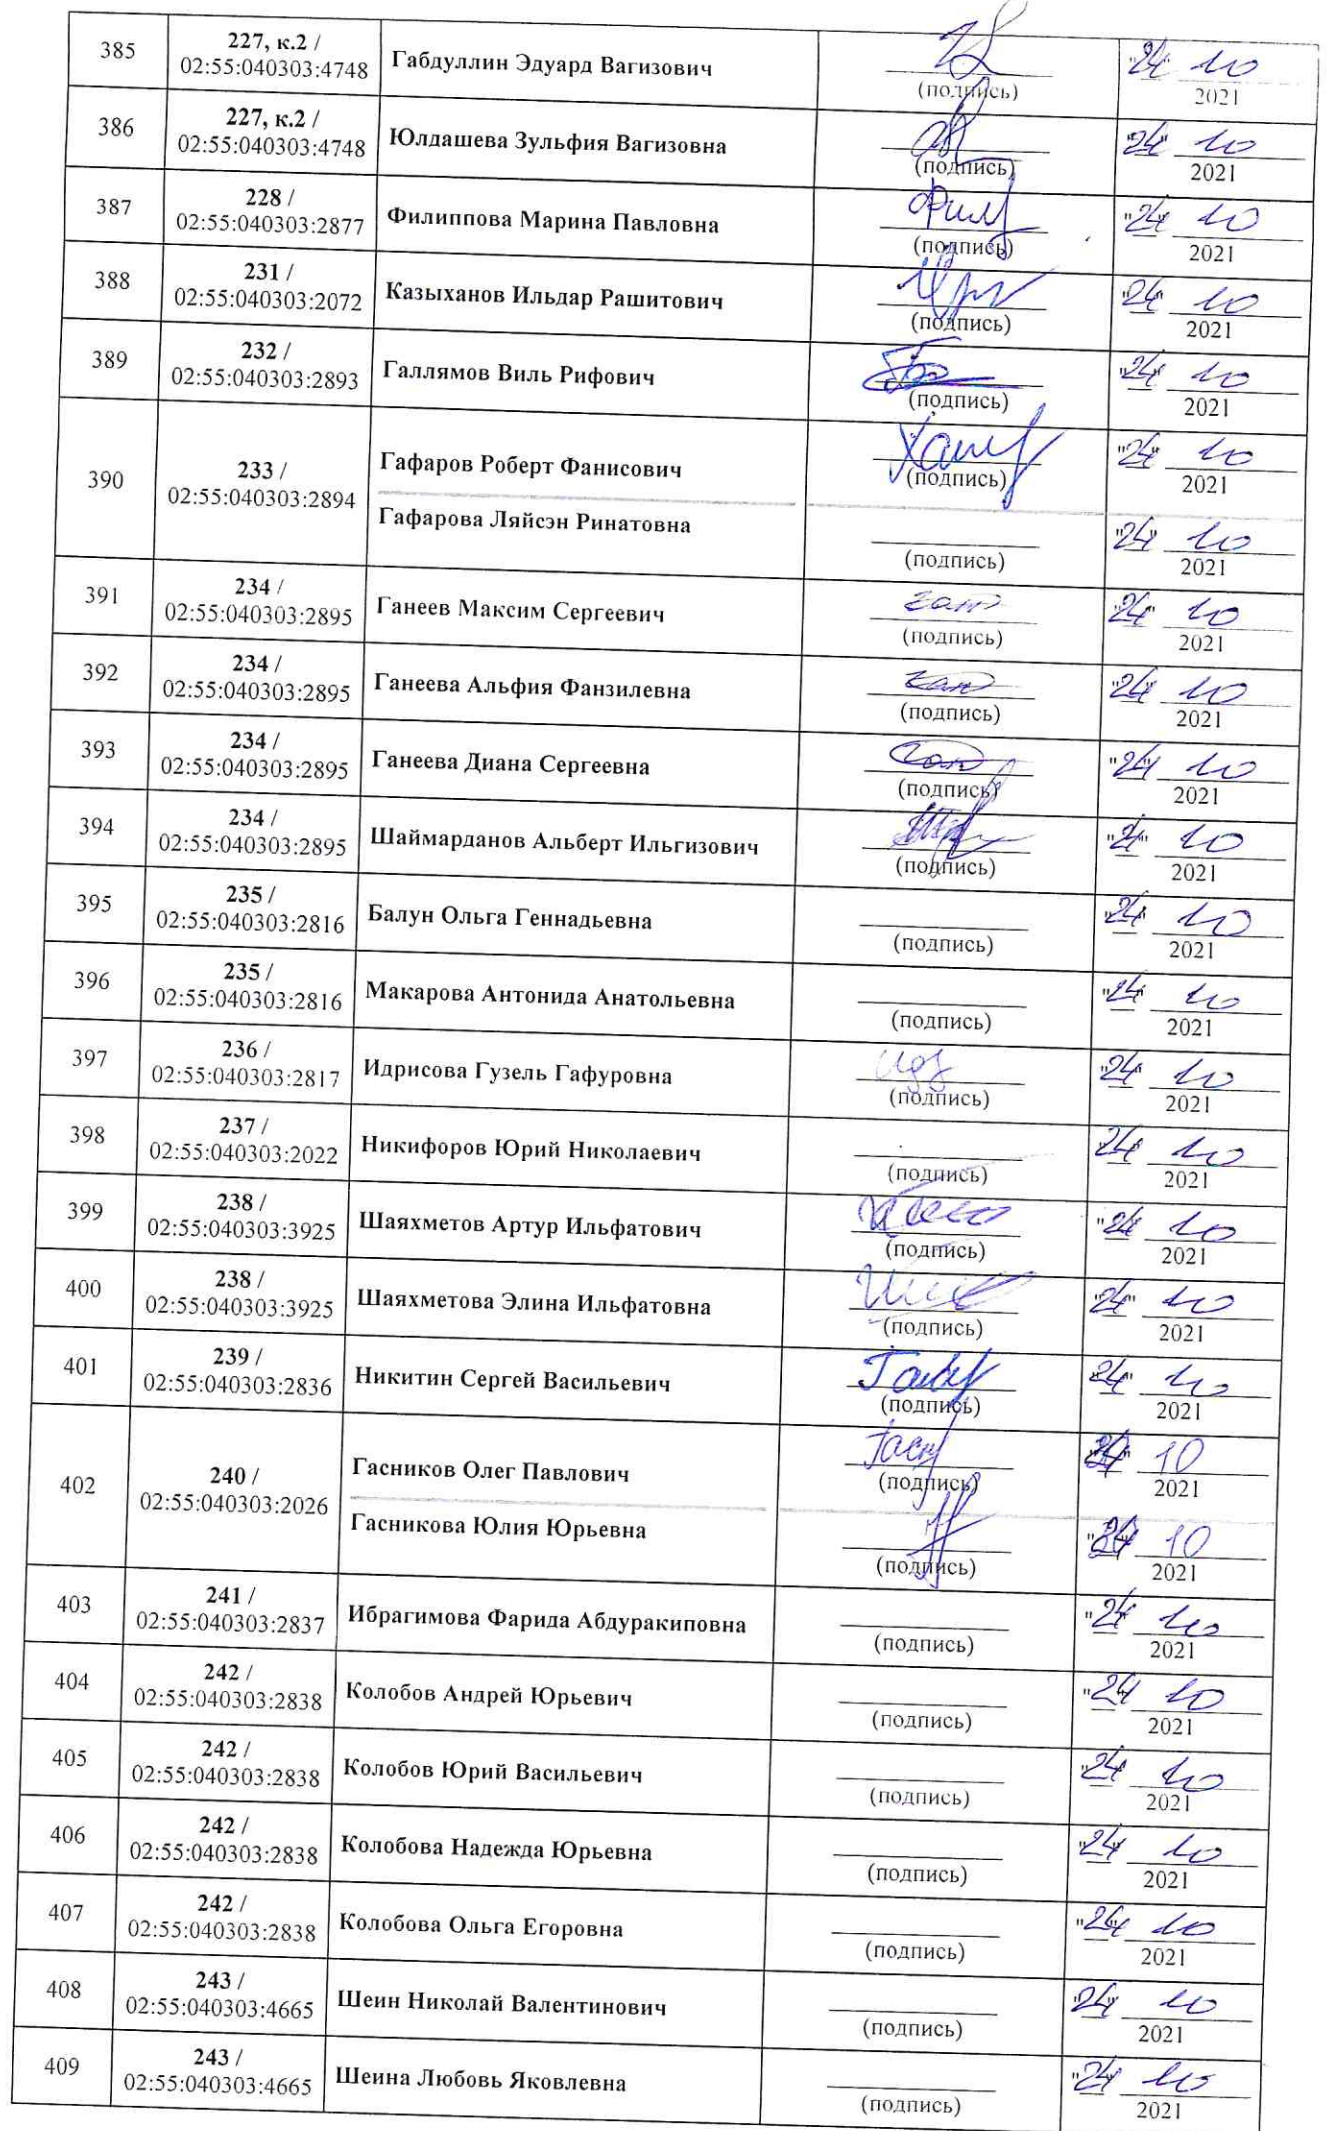 385
227, к.2 /
02:55:040303:4748
Габдуллин Эдуард Вагизович
(подпись)
"24" 10
2021
386
227, к.2 /
02:55:040303:4748
Юлдашева Зульфия Вагизовна
(подпись)
"24" 10
2021
387
228 /
02:55:040303:2877
Филиппова Марина Павловна
(подпись)
"24" 10
2021
388
231 /
02:55:040303:2072
Казыханов Ильдар Рашитович
(подпись)
"24" 10
2021
389
232 /
02:55:040303:2893
Галлямов Виль Рифович
(подпись)
"24" 10
2021
390
233 /
02:55:040303:2894
Гафаров Роберт Фанисович
(подпись)
"24" 10
2021
Гафарова Ляйсэн Ринатовна
(подпись)
"24" 10
2021
391
234 /
02:55:040303:2895
Ганеев Максим Сергеевич
(подпись)
"24" 10
2021
392
234 /
02:55:040303:2895
Ганеева Альфия Фанзилевна
(подпись)
"24" 10
2021
393
234 /
02:55:040303:2895
Ганеева Диана Сергеевна
(подпись)
"24" 10
2021
394
234 /
02:55:040303:2895
Шаймарданов Альберт Ильгизович
(подпись)
"24" 10
2021
395
235 /
02:55:040303:2816
Балун Ольга Геннадьевна
(подпись)
"24" 10
2021
396
235 /
02:55:040303:2816
Макарова Антонида Анатольевна
(подпись)
"24" 10
2021
397
236 /
02:55:040303:2817
Идрисова Гузель Гафуровна
(подпись)
"24" 10
2021
398
237 /
02:55:040303:2022
Никифоров Юрий Николаевич
(подпись)
"24" 10
2021
399
238 /
02:55:040303:3925
Шаяхметов Артур Ильфатович
(подпись)
"24" 10
2021
400
238 /
02:55:040303:3925
Шаяхметова Элина Ильфатовна
(подпись)
"24" 10
2021
401
239 /
02:55:040303:2836
Никитин Сергей Васильевич
(подпись)
"24" 10
2021
402
240 /
02:55:040303:2026
Гасников Олег Павлович
(подпись)
"24" 10
2021
Гасникова Юлия Юрьевна
(подпись)
"24" 10
2021
403
241 /
02:55:040303:2837
Ибрагимова Фарида Абдуракиповна
(подпись)
"24" 10
2021
404
242 /
02:55:040303:2838
Колобов Андрей Юрьевич
(подпись)
"24" 10
2021
405
242 /
02:55:040303:2838
Колобов Юрий Васильевич
(подпись)
"24" 10
2021
406
242 /
02:55:040303:2838
Колобова Надежда Юрьевна
(подпись)
"24" 10
2021
407
242 /
02:55:040303:2838
Колобова Ольга Егоровна
(подпись)
"24" 10
2021
408
243 /
02:55:040303:4665
Шеин Николай Валентинович
(подпись)
"24" 10
2021
409
243 /
02:55:040303:4665
Шеина Любовь Яковлевна
(подпись)
"24" 10
2021